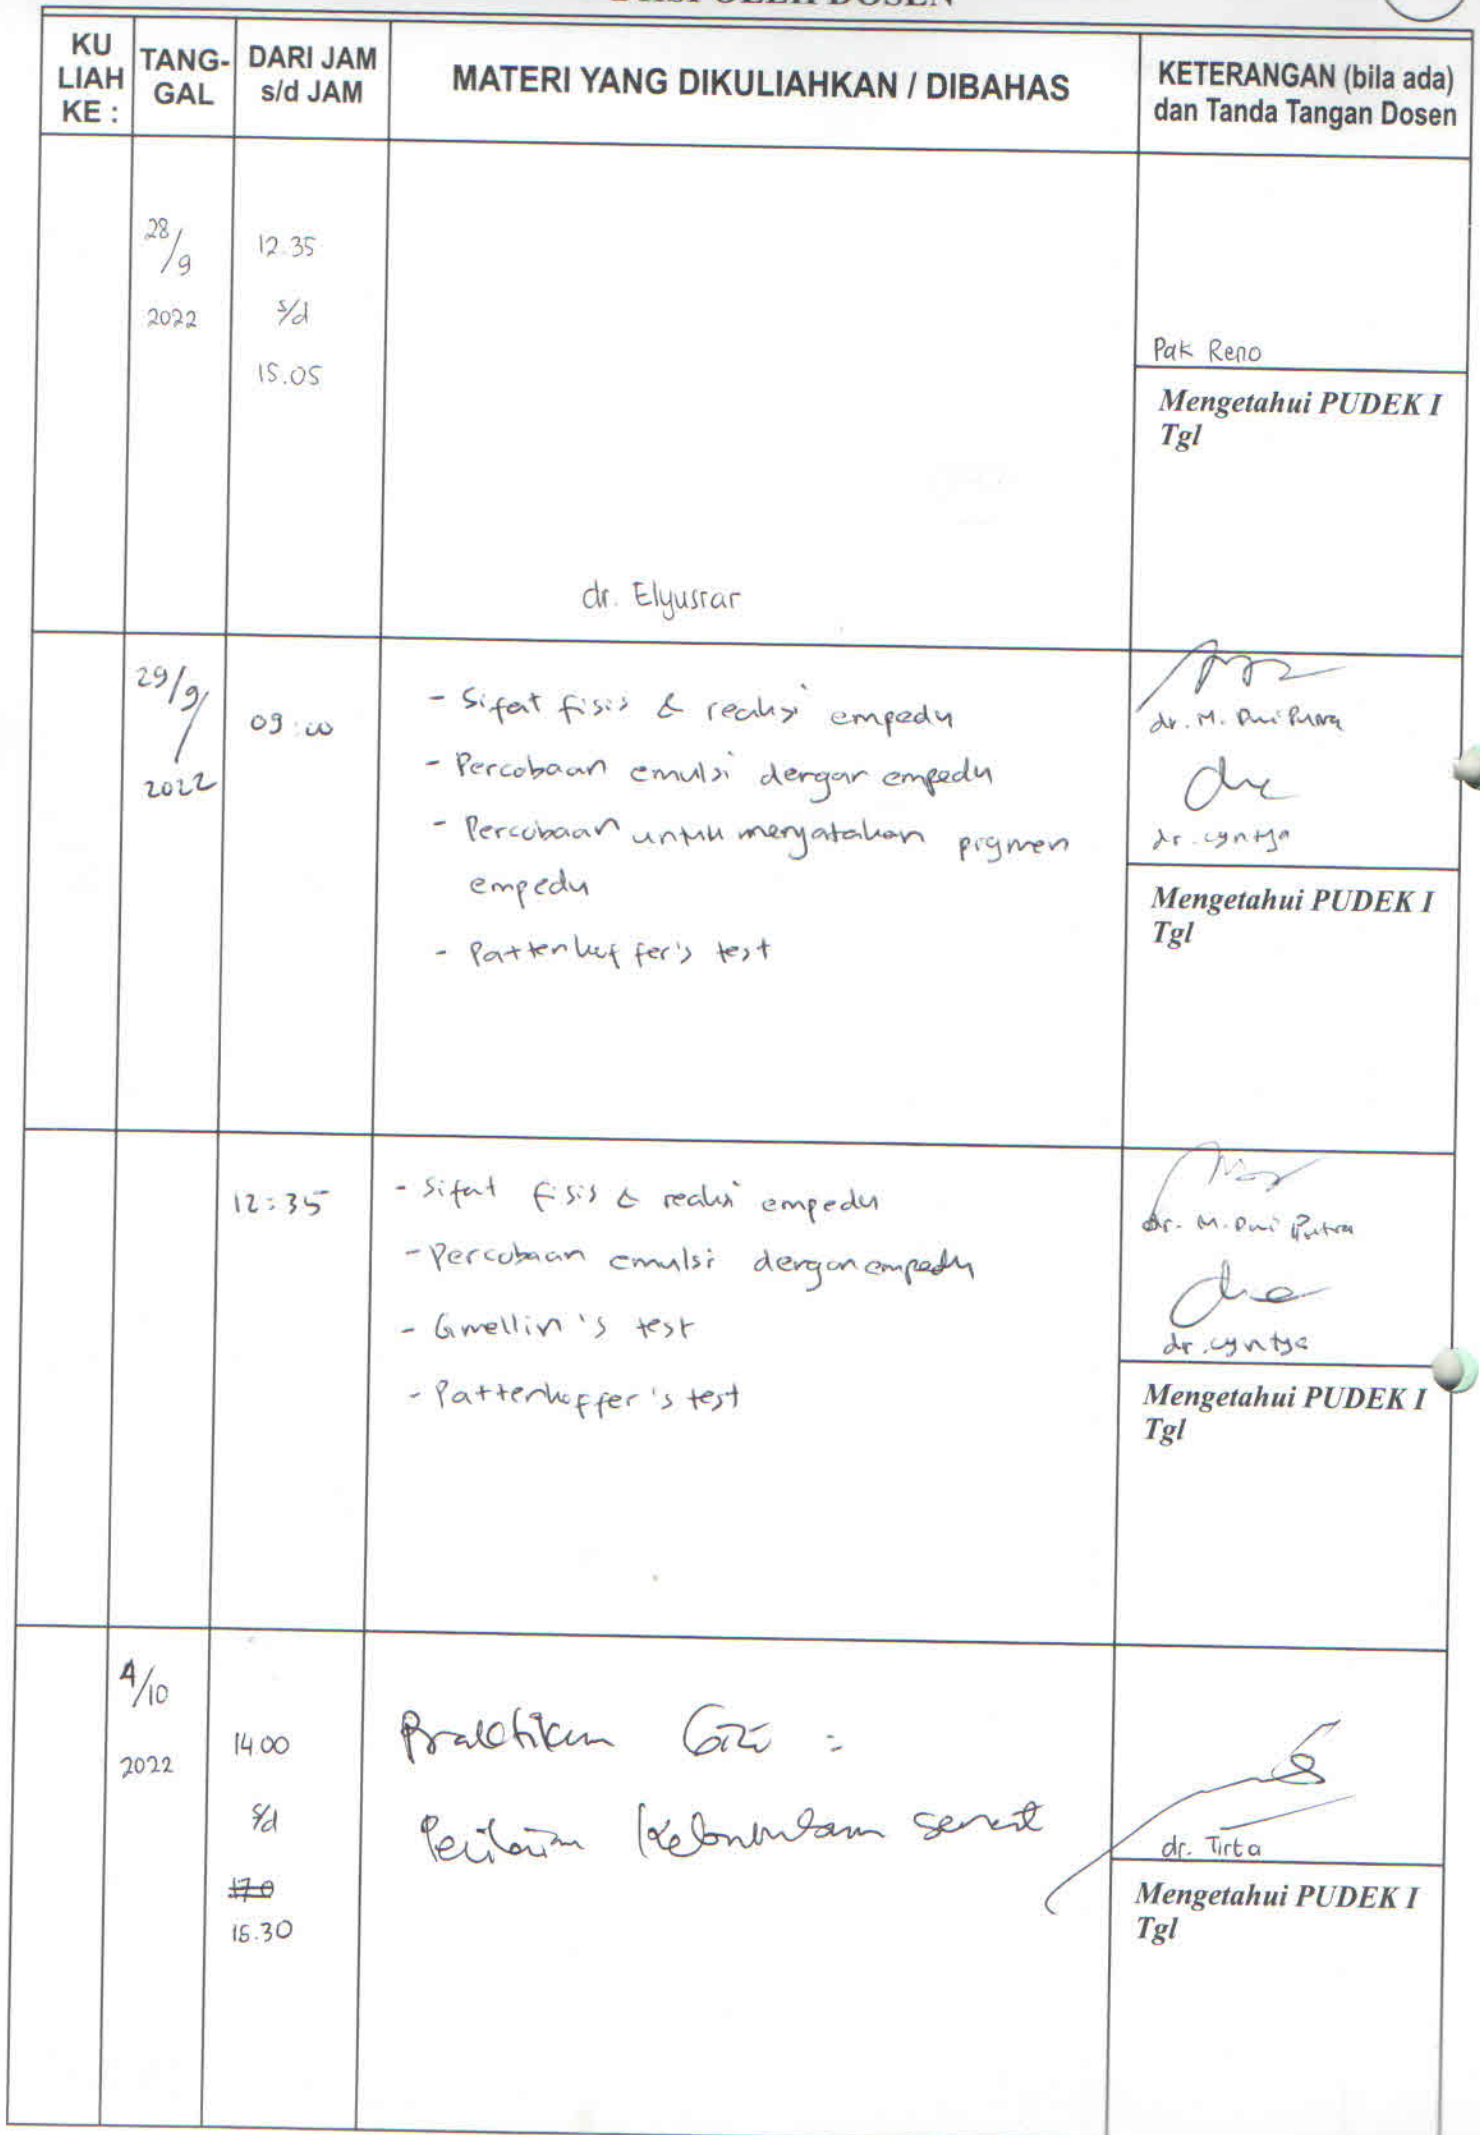 DIISI OLEH DOSEN
KU LIAH KE :
TANG-GAL
DARI JAM s/d JAM
MATERI YANG DIKULIAHKAN / DIBAHAS
KETERANGAN (bila ada) dan Tanda Tangan Dosen
28/9
2022
12.35
s/d
15.05
dr. Elyusrar
Pak Reno
Mengetahui PUDEK I
Tgl
29/9/
2022
09:00
- Sifat fisis & reaksi empedu
- Percobaan emulsi dengan empedu
- Percobaan untuk menyatakan pigmen
empedu
- Pattenhoffer's test
dr. M. Dwi Putra
dr. cyntya
Mengetahui PUDEK I
Tgl
12:35
- Sifat fisis & reaksi empedu
- Percobaan emulsi dengan empedu
- Gmellin's test
- Pattenhoffer's test
dr. M. Dwi Putra
dr. cyntya
Mengetahui PUDEK I
Tgl
4/10
2022
14.00
s/d
17.0
15.30
Praktikum Gizi :
serat
dr. Tirta
Mengetahui PUDEK I
Tgl